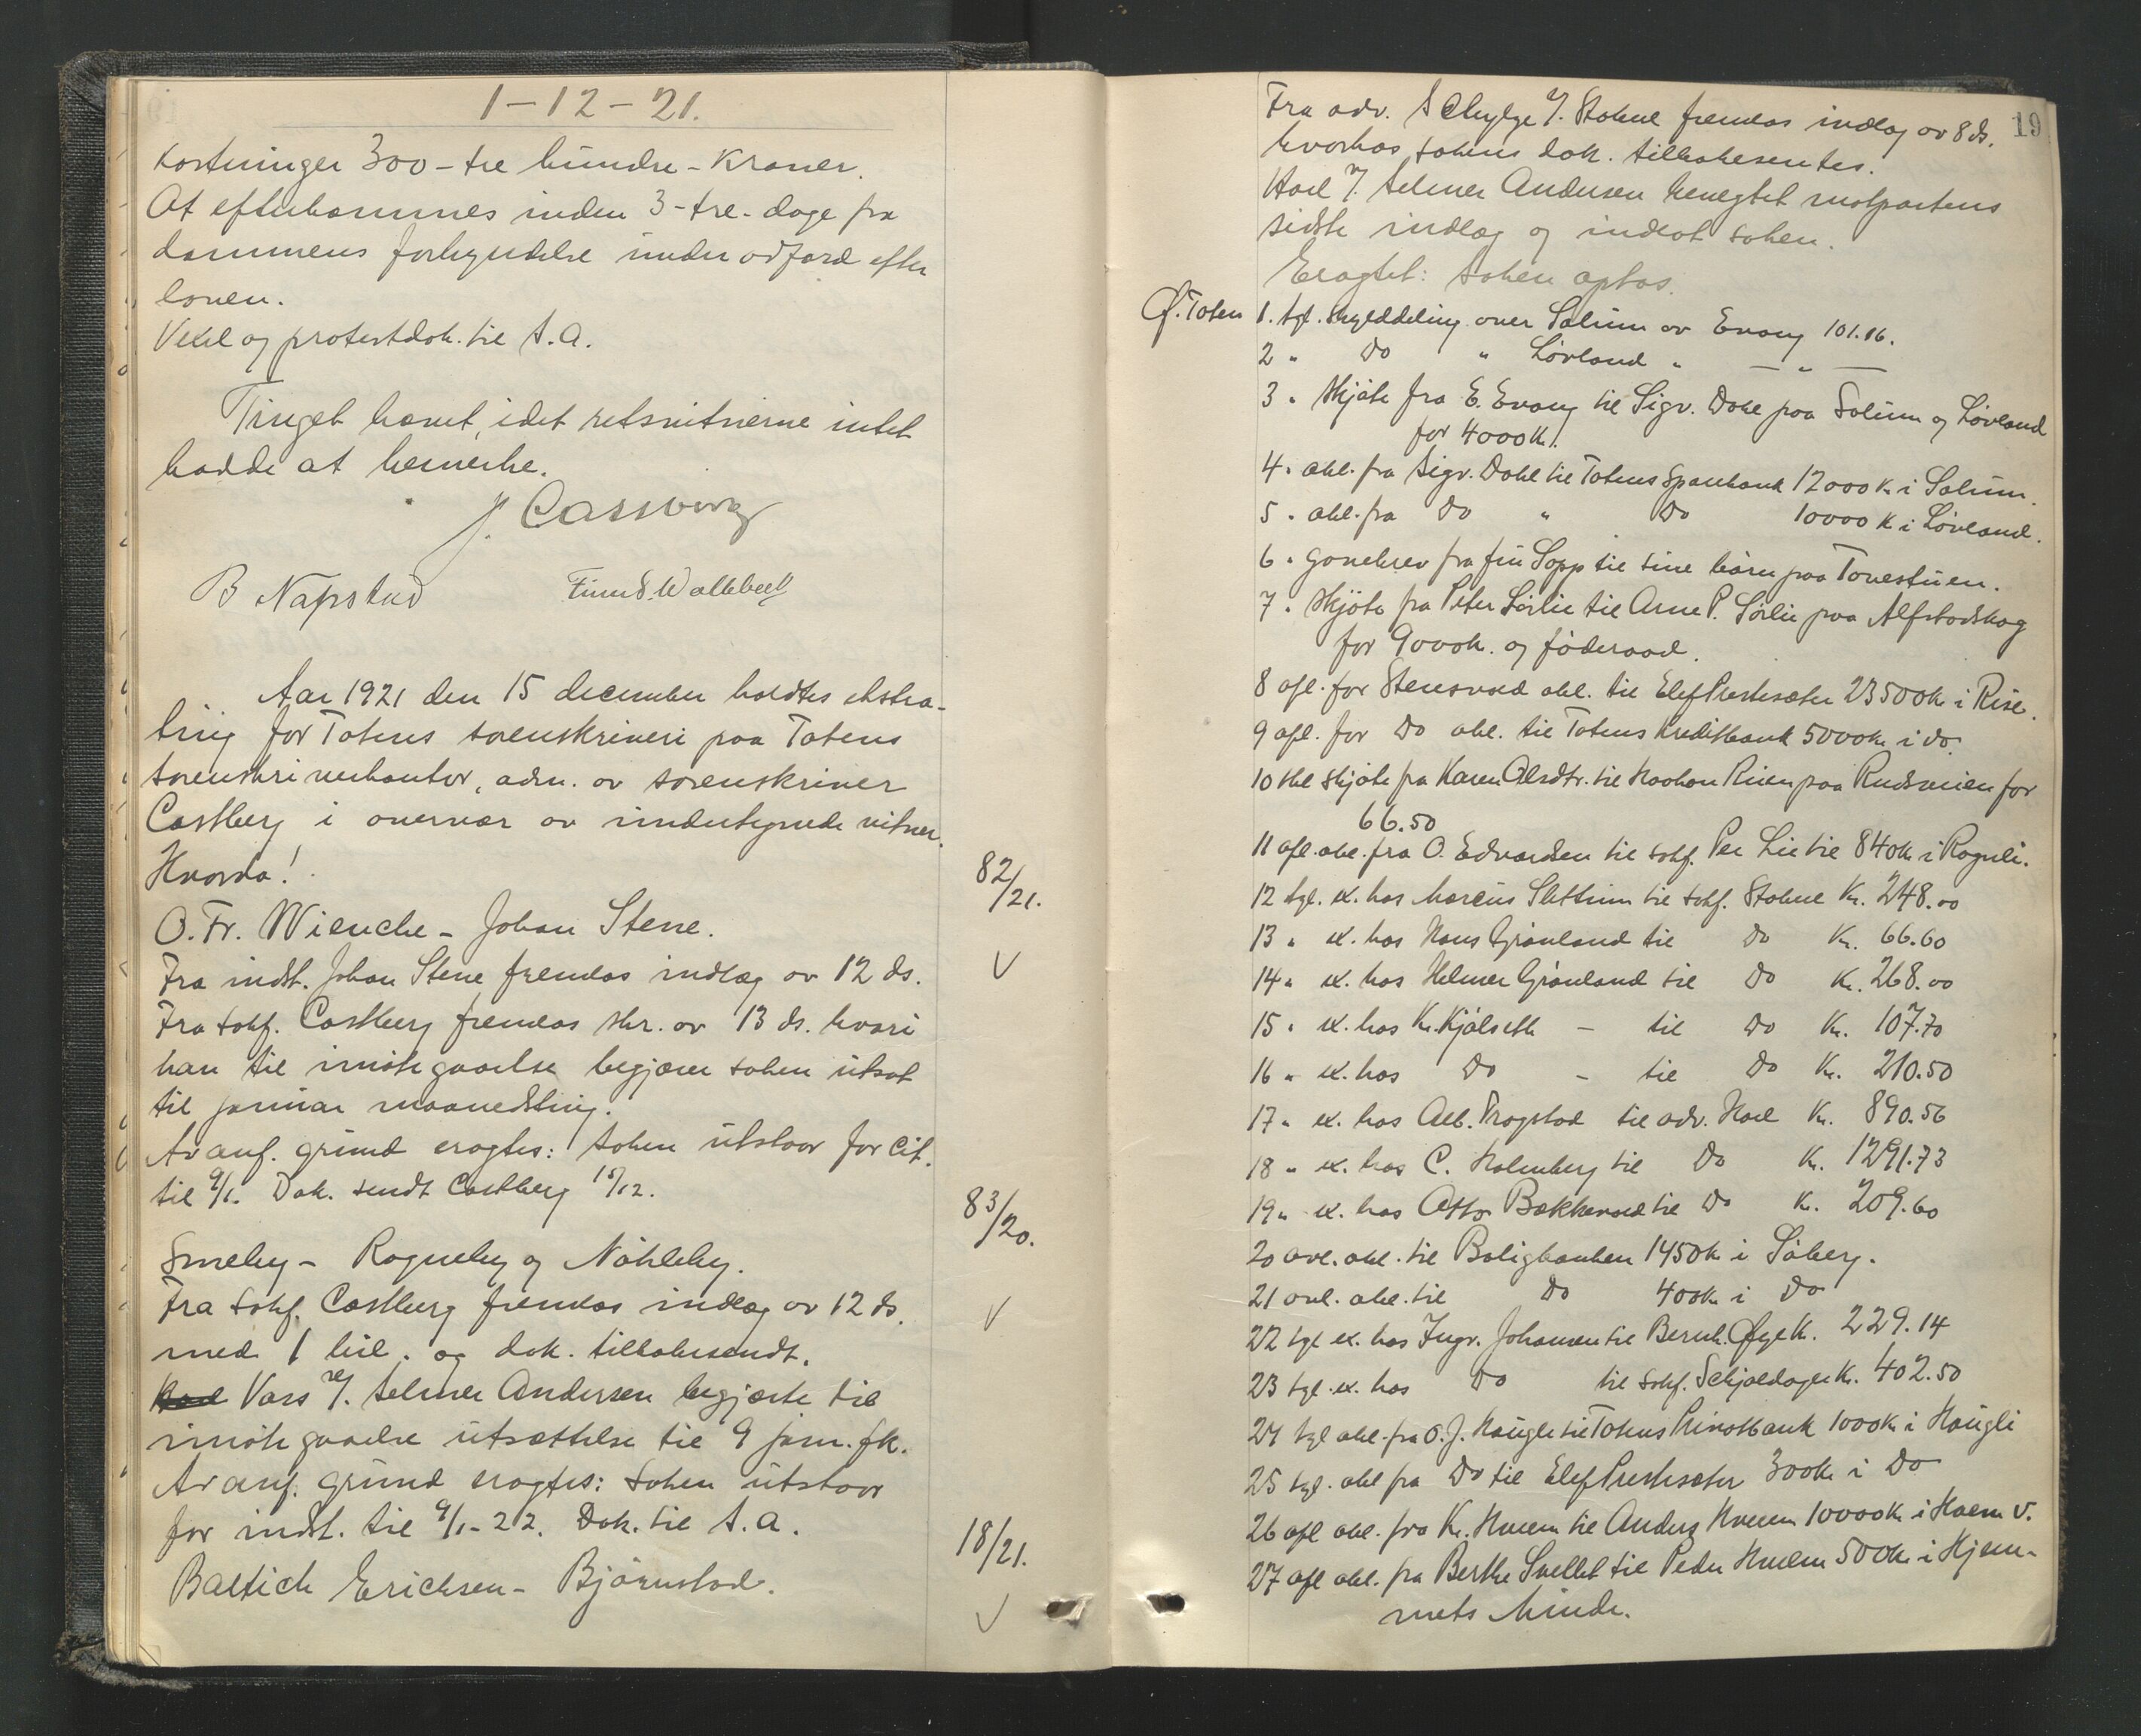 1-12-21.
kostninger 300 - tre hundre - Kroner.
At efterkommes inden 3 - tre - dage fra
dommens forkyndelse under adfærd efter
loven.
Vexel og protestdok. til s.a.
Tinget hævet, idet retsvitnerne intet
hadde at bemerke.
J. Castberg
B Napstad
Aar 1921 den 15 december holdtes ekstra-
ting for Totens sorenskriveri paa Totens
sorenskriverkontor, adm. av sorenskriver
Castberg i overvær av undertegnede vitner.
Hvorda!
82/21.
O. Fr. Wiencke - Johan Stene.
Fra indst. Johan Stene fremlas indlæg av 12 ds.
V
Fra sakf. Castberg fremlas skr. av 13 ds. hvori
han til imøtegaaelse begjærer saken utsat
til januar maanedsting.
Av anf. grund eragtes: saken utstaar for cit.
til 9/1. Dok. sendt Castberg 15/12.
83/20.
Smeby - Rogneby og Nøkleby.
Fra sakf. Castberg fremlas indlæg av 12 ds.
V
med 1 bil. og dok. tilbakesendt.
Vass v/ Selmer Andersen begjærte til
imøtegaaelse utsættelse til 9 jan. fk.
Av anf. grund eragtes: Saken utstaar
for indst. til 9/1-22. Dok. til s.a.
18/21.
Baltich Erichsen - Bjørnstad.
V
19
Fra adv. Schylge v/ Stabell fremlas indlæg av 8 ds.
hvorhos sakens dok. tilbakesentes.
Hoel v/ Selmer Andersen benegtet motpartens
sidste indlæg og indlot saken.
Eragtet: saken optas.
Ø. Toten 1. tgl. skylddeling over Solum av Evang 101.16.
2 " Do " Løvland " — " —
3 " Skjøte fra E. Evang til Sigv. Dahl paa Solum og Løvland
for 4000 K.
4 " obl. fra Sigv. Dahl til Totens Sparebank 12000 K. i Solum.
5 " obl. fra Do " Do 10000 K i Løvland.
6 " gavebrev fra fru Sopp til sine børn paa Tonestuen.
7 " Skjøte fra Peter Sørlie til Arne P. Sørlie paa Alfstadskog
for 9000 k. og føderaad.
8 afl. for Stensvold obl. til Elef Prestesæter 23500 k. i Rise.
9 afl. for Do obl. til Totens Kreditbank 5000 k. i do.
10 tgl. skjøte fra Karen Olsdtr. til Haakon Risen paa Rudsveien for
66.50
11 afl. obl. fra O. Edvardsen til sakf. Per Lie til 840 k. i Rognli.
12 tgl. ex. hos Marcus Slettum til sakf. Stabell Kr. 248.00
13 " ex. hos Hans Grønland til Do Kr. 66.60
14 " ex. hos Helmer Grønland til Do Kr. 268.00
15 " ex. hos Kr. Kjølseth - til Do Kr. 107.70
16 " ex. hos Do - til Do Kr. 210.50
17 " ex. hos Alb. Dragstad til adv. Hoel Kr. 890.56
18 " ex. hos C. Holmberg til Do Kr. 1291.73
19 " ex. hos Otto Bækkevold til Do Kr. 209.60
20 avl. obl. til Boligbanken 1450 k. i Søberg.
21 avl. obl. til Do 400 k. i Do
22 tgl ex. hos Ingv. Johansen til Bernh. Øye K. 229.14
23 tgl. ex. hos Do til sakf. Schjoldager K. 402.50
24 tgl obl. fra O. J. Haugli til Totens Privatbank 1000 k. i Haugli
25 tgl. obl fra Do til Elef Prestesæter 300 k. i Do
26 afl obl. fra Kr. Hveem til Anders Hveem 10000 k. i Hveem v.
27 afl obl. fra Berthe Svellet til Peder Hveem 500 k. i Hjem-
mets Minde.